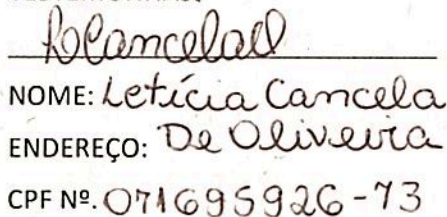 NOME: Letícia Cancela
ENDEREÇO: De Oliveira
CPF Nº. 071695926-73